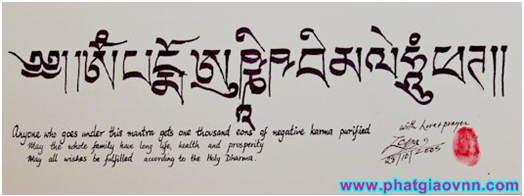 ༄༅།།ཨོཾ་པདྨོ་ཨུཥྞཱིཥ་བིམལེ་ཧཱུྃ་ཕཊ།།
Anyone who goes under this mantra gets one thousand eons of negative karma purified
May the whole family have long life, health and prosperity
May all wishes be fulfilled according to the Holy Dharma.
with love + prayer
www.phatgiaovnn.com